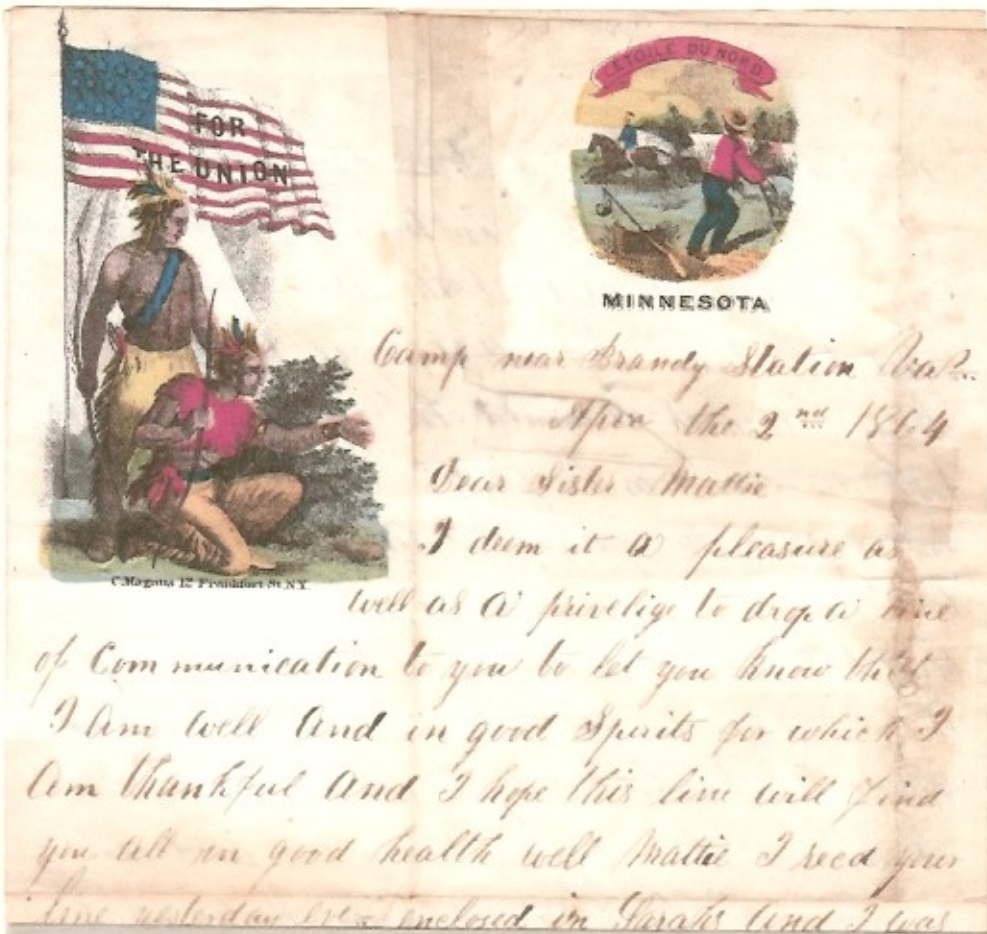 FOR
THE UNION
L'ETOILE DU NORD
MINNESOTA
C. Magnus 12 Frankfort St. N.Y.
Camp near Brandy Station Va
the 2nd 1864
Dear Sister Mattie
I deem it a pleasure as
well as a privelige to drop a line
of Communication to you to let you know that
I Am well And in good Spirits for which I
Am thankful And I hope this line will find
you all in good health well Mattie I recd your
line yesterday enclosed in Sarahs And I was